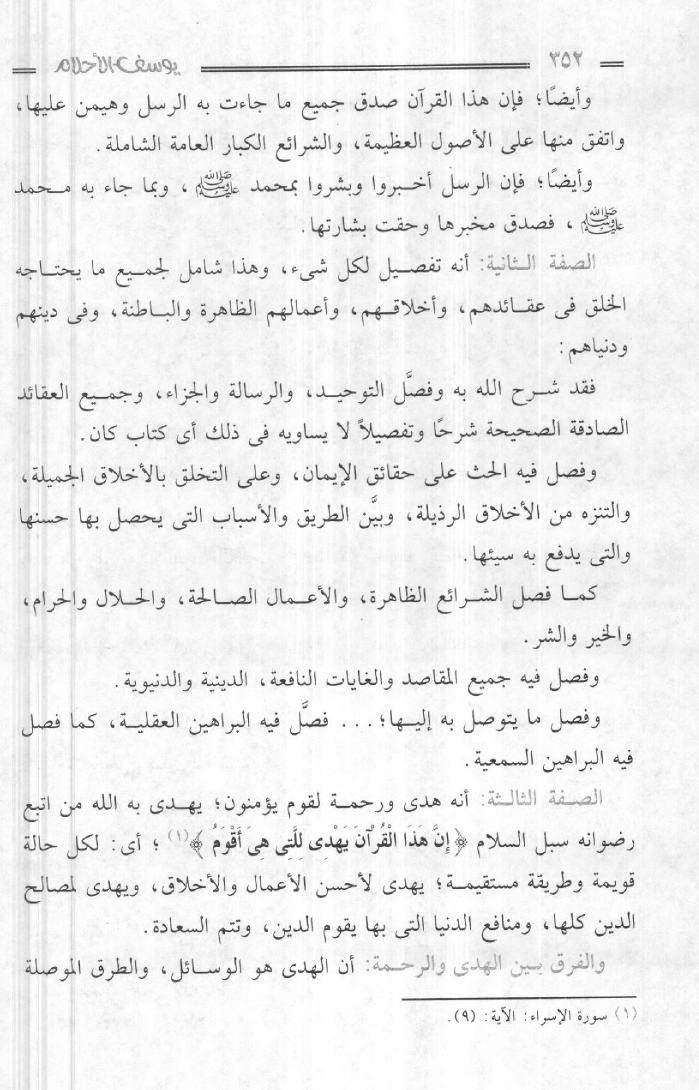 ٣٥٢ يوسف الأحلام
وأيضًا؛ فإن هذا القرآن صدق جميع ما جاءت به الرسل وهيمن عليها،
واتفق منها على الأصول العظيمة، والشرائع الكبار العامة الشاملة.
وأيضًا؛ فإن الرسل أخبروا وبشروا بمحمد ﷺ، وبما جاء به محمد
ﷺ، فصدق مخبرها وحقت بشارتها.
الصفة الثانية: أنه تفصيل لكل شىء، وهذا شامل لجميع ما يحتاجه
الخلق فى عقائدهم، وأخلاقهم، وأعمالهم الظاهرة والباطنة، وفى دينهم
ودنياهم:
فقد شرح الله به وفصَّل التوحيد، والرسالة والجزاء، وجميع العقائد
الصادقة الصحيحة شرحًا وتفصيلاً لا يساويه فى ذلك أى كتاب كان.
وفصل فيه الحث على حقائق الإيمان، وعلى التخلق بالأخلاق الجميلة،
والتنزه من الأخلاق الرذيلة، وبيَّن الطريق والأسباب التى يحصل بها حسنها
والتى يدفع به سيئها.
كما فصل الشرائع الظاهرة، والأعمال الصالحة، والحلال والحرام،
والخير والشر.
وفصل فيه جميع المقاصد والغايات النافعة، الدينية والدنيوية.
وفصل ما يتوصل به إليها؛... فصَّل فيه البراهين العقلية، كما فصل
فيه البراهين السمعية.
الصفة الثالثة: أنه هدى ورحمة لقوم يؤمنون؛ يهدى به الله من اتبع
رضوانه سبل السلام ﴿إِنَّ هَذَا الْقُرْآنَ يَهْدِى لِلَّتِى هِىَ أَقْوَمُ﴾(١)؛ أى: لكل حالة
قويمة وطريقة مستقيمة؛ يهدى لأحسن الأعمال والأخلاق، ويهدى لمصالح
الدين كلها، ومنافع الدنيا التى بها يقوم الدين، وتتم السعادة.
والفرق بين الهدى والرحمة: أن الهدى هو الوسائل، والطرق الموصلة
(١) سورة الإسراء: الآية: (٩).